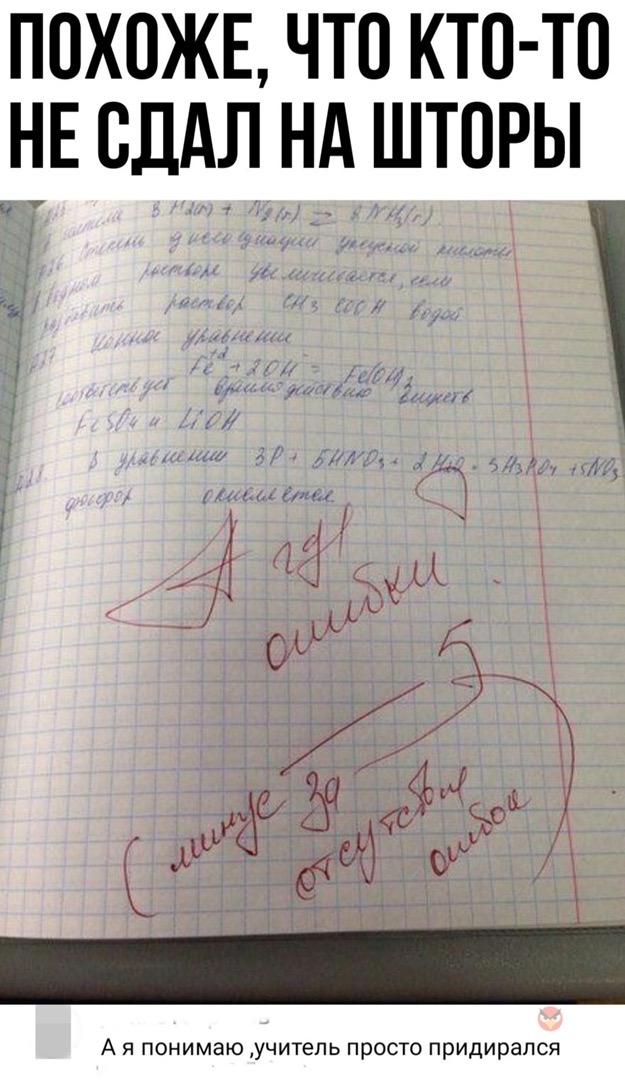 ПОХОЖЕ, ЧТО КТО-ТО
НЕ СДАЛ НА ШТОРЫ
3 H2(г) + N2(г) ⇄ 2NH3(г).
Д26 Степень диссоциации уксусной кислоты
в водном растворе увеличивается, если
разбавить раствор CH3COOH водой
Д27 Ионное уравнение
Fe+2 + 2OH- = Fe(OH)2
соответствует взаимодействию веществ
FeSO4 и LiOH
Д28. В уравнении 3P + 5HNO3 + 2H2O = 3H3PO4 + 5NO
фосфор окисляется.
А где
ошибки
5-
(минус за
отсутствие
ошибок)
А я понимаю ,учитель просто придирался